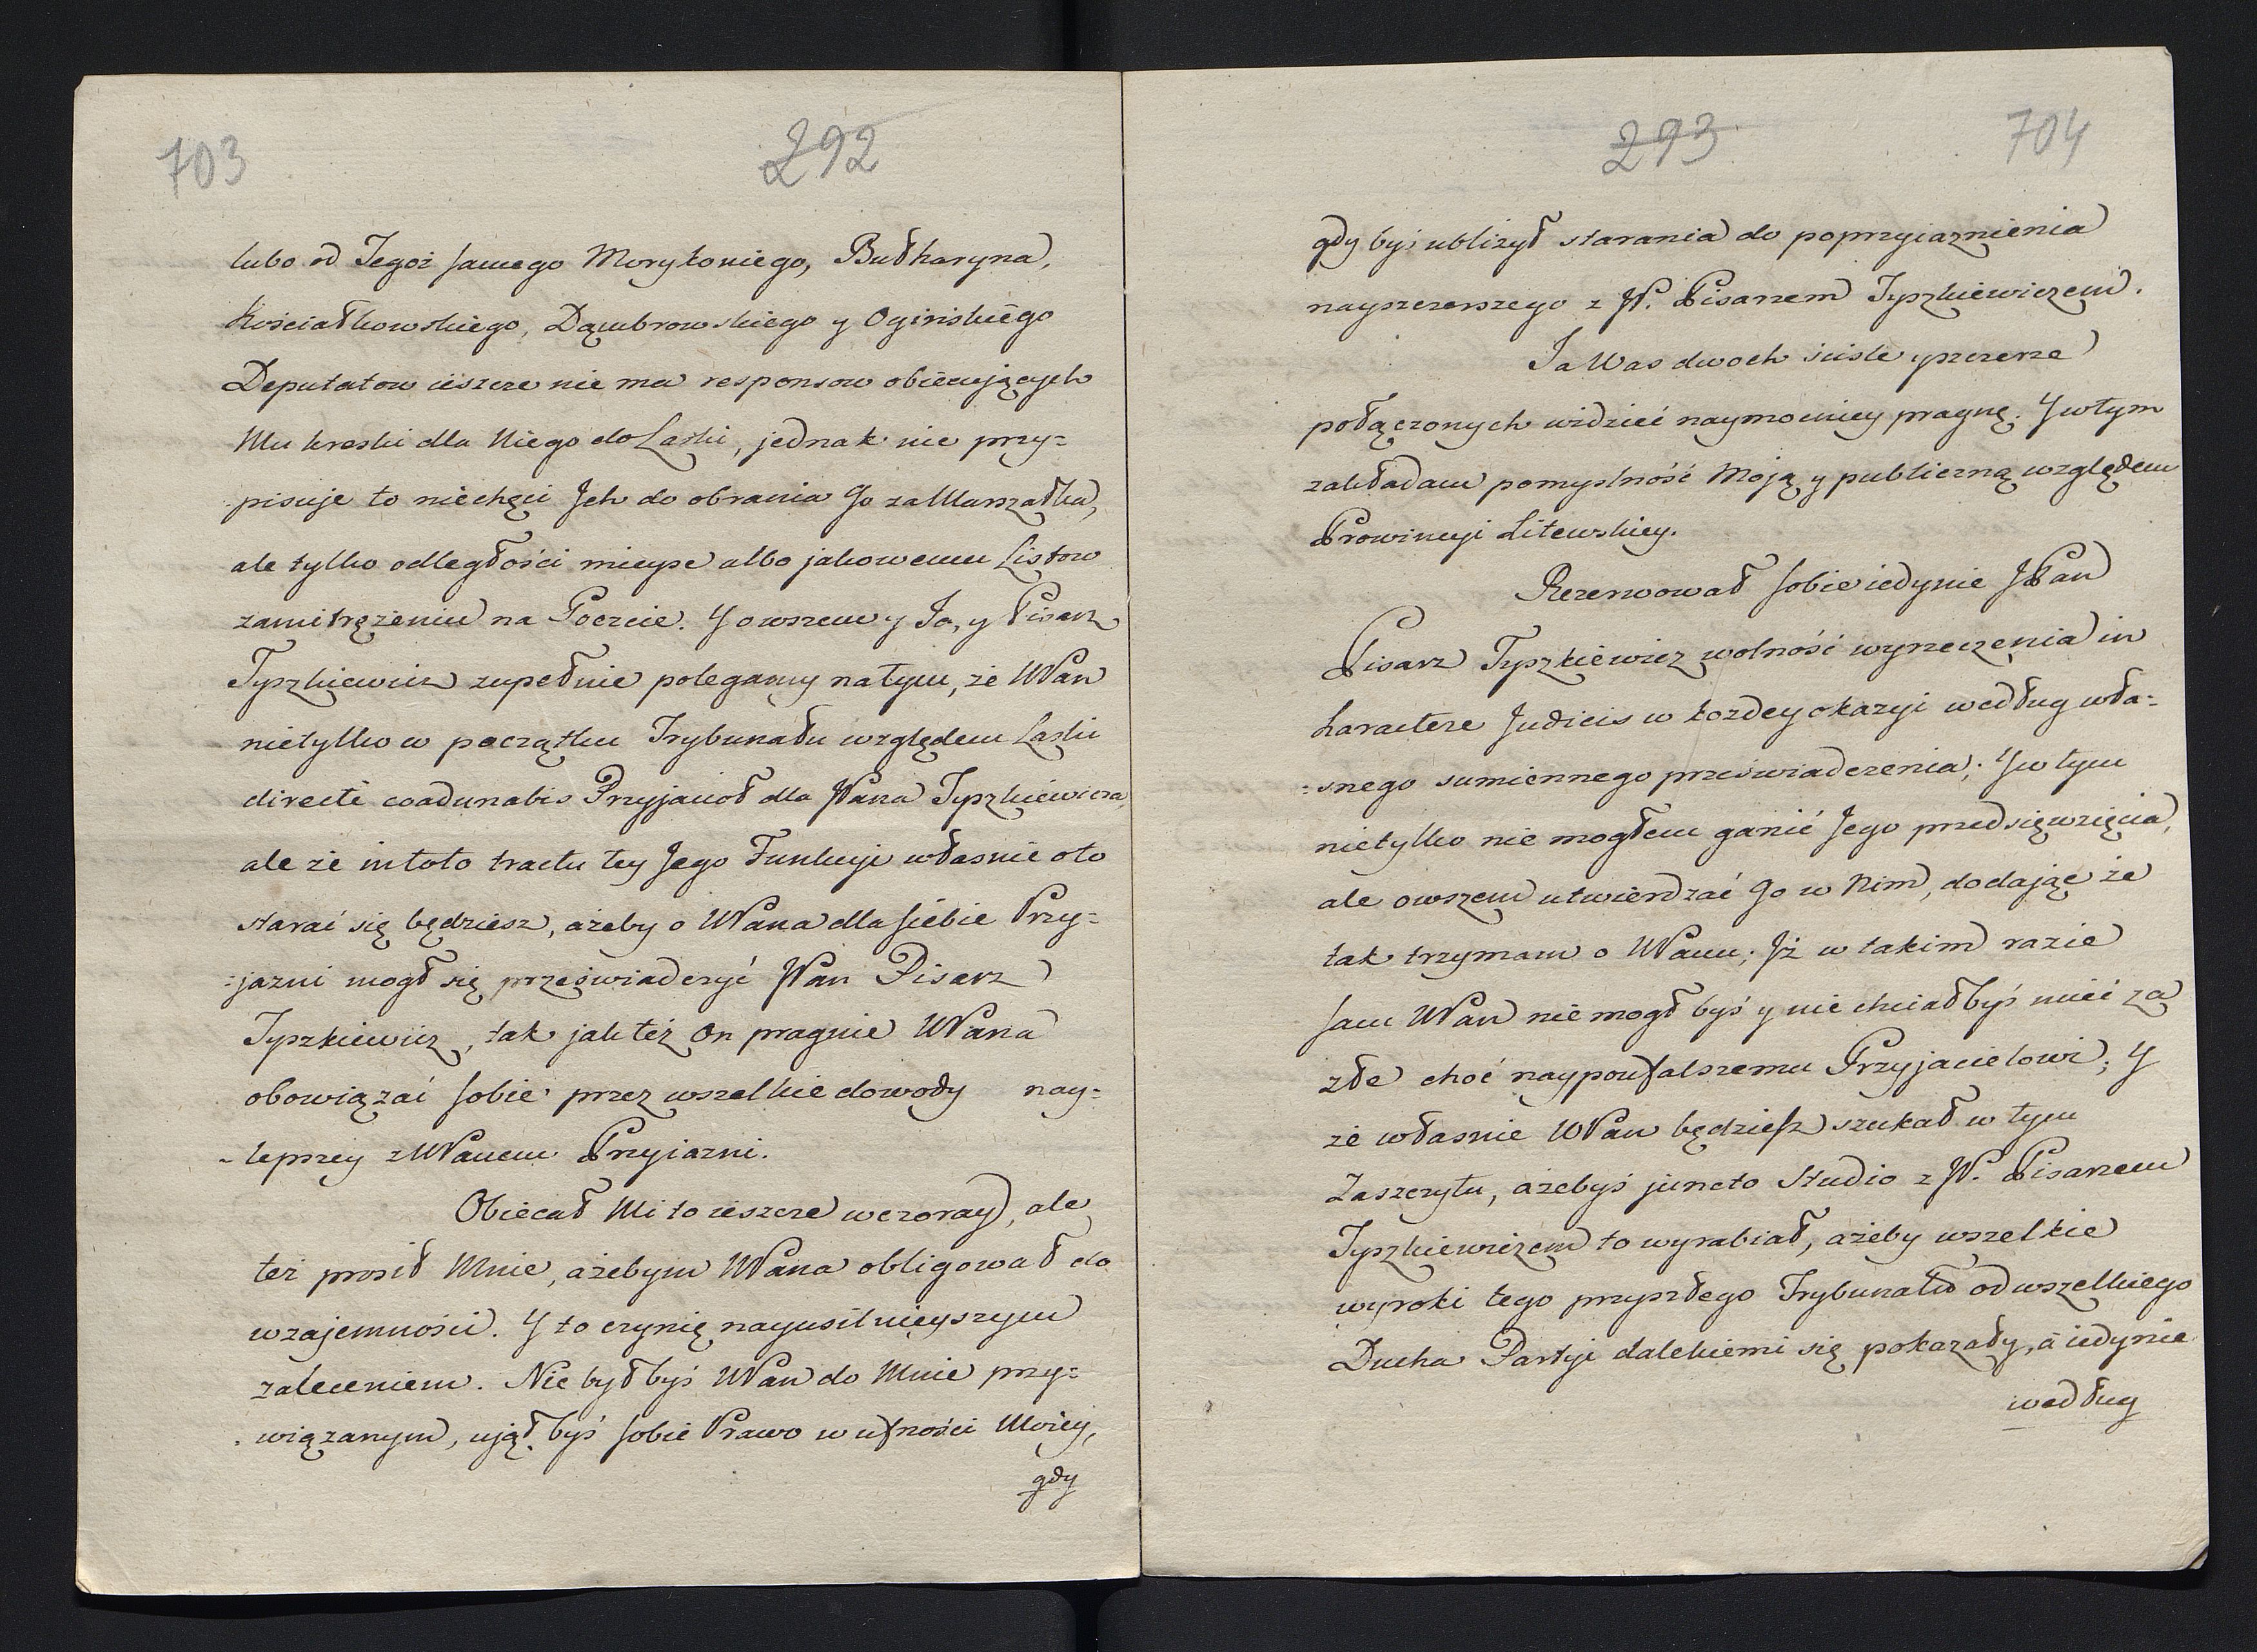 703
292
lubo od Tegoż samego Morykoniego, Bułharyna,
Kościałkowskiego, Dąmbrowskiego y Ogińskiego
Deputatow ieszcze nie ma responsow obiecujących
Mu kreski dla Niego do Laski, jednak nie przy=
pisuje to niechęci Jch do obrania Go za Marszałka,
ale tylko odległości mieysc albo jakowemu Listow
zamitrężeniu na Poczcie. Y owszem y Ja, y Pisarz
Tyszkiewicz zupełnie polegamy na tym, że WPan
nietylko w początku Trybunału względem Laski
directè coadunabis Przyjacioł dla JPana Tyszkiewicza
ale że in toto tractu tey Jego Funkcyi własnie oto
starać się będziesz, ażeby o WPana dla siebie Przy=
=jazni mogł się przeświadczyć JPan Pisarz
Tyszkiewicz, tak jak też On pragnie WPana
obowiązać sobie przez wszelkie dowody nay=
-lepszey z WPanem Przyiazni.
Obiecał Mi to ieszcze wczoray, ale
też prosił Mnie, ażebym WPana obligował do
wzajemności. Y to czynię nayusilnieyszym
zaleceniem. Nie byłbyś WPan do Mnie przy=
wiązanym, ująłbyś sobie Prawo w ufności Moiey,
gdy
293
704
gdybyś ubliżył starania do poprzyiaznienia
nayszczerszego z JP. Pisarzem Tyszkiewiczem.
Ja Was dwoch sciśle y szczerze
połączonych widzieć naymocniey pragnę. Y w tym
zakładam pomyslność Moją y publiczną względem
Prowincyi Litewskiey.
Rezerwował sobie iedynie JPan
Pisarz Tyszkiewicz wolność wyrzeczenia in
haractere Judicis w kozdey okazyi według wła=
=snego sumiennego przeświadczenia; Y w tym
nietylko nie mogłem ganić Jego przedsięwzięcia,
ale owszem utwierdzać Go w Nim, dodając że
tak trzymam o WPanu; Jż w takim razie
sam WPan nie mogłbyś y nie chciałbyś mieć za
złe choć naypoufalszemu Przyjacielowi; Y
że własnie WPan będziesz szukał w tym
Zaszczytu, ażebyś juncto studio z JP. Pisarzem
Tyszkiewiczem to wyrabiał, ażeby wszelkie
wyroki tego przyszłego Trybunału od wszelkiego
Ducha Partyi dalekiemi się pokazały, a iedynie
według